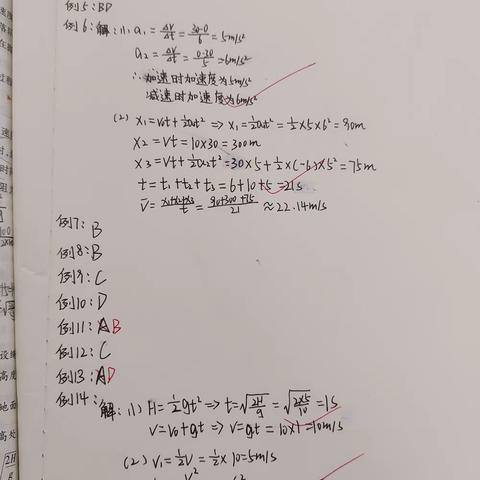 例5：BD
例6：解：(1) a₁=ΔV/Δt=30-0/6=5m/s²
a₂=ΔV/Δt=0-30/5=6m/s²
∴加速时加速度为5m/s²
减速时加速度为6m/s²
(2) x₁=V₀t+½at² ⇒ x₁=½at²=½×5×6²=90m
x₂=Vt=10×30=300m
x₃=Vt+½a₂t²=30×5+½×(-6)×5²=75m
t=t₁+t₂+t₃=6+10+5=21s
V̄=x₁+x₂+x₃/t=90+300+75/21≈22.14m/s
例7：B
例8：B
例9：C
例10：D
例11：A B
例12：C
例13：A D
例14：解：(1) H=½gt² ⇒ t=√2H/g=√2×5/10=1s
V=V₀+gt ⇒ V=gt=10×1=10m/s
(2) V₁=½V=½×10=5m/s